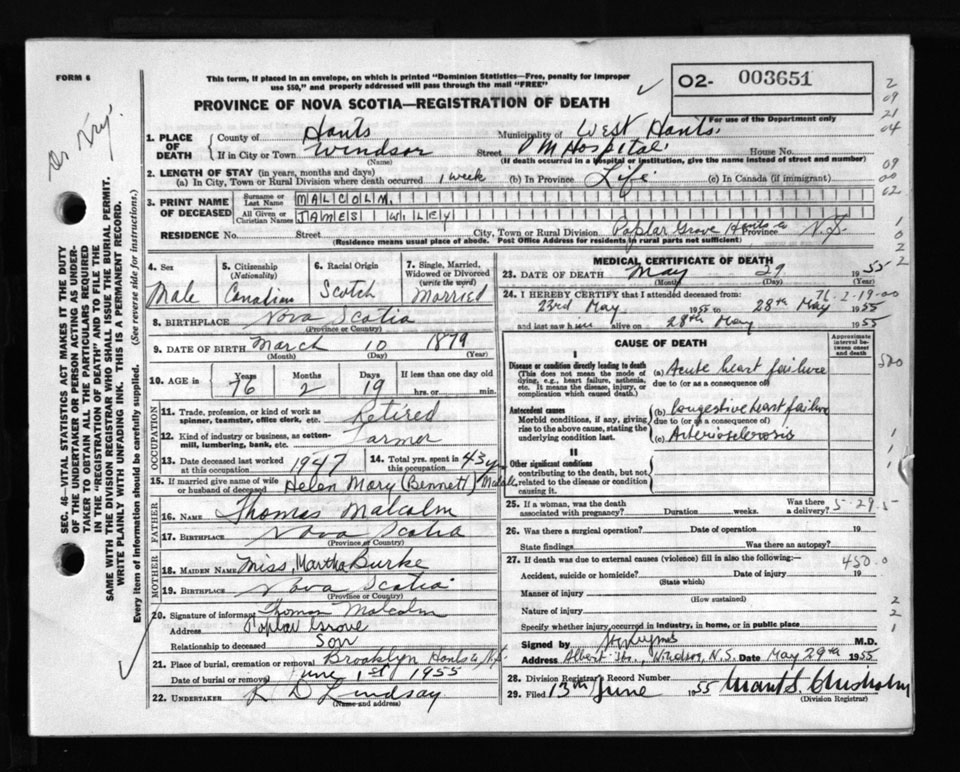 FORM 6
This form, if placed in an envelope, on which is printed "Dominion Statistics—Free, penalty for improper
use $50," and properly addressed will pass through the mail "FREE"
PROVINCE OF NOVA SCOTIA—REGISTRATION OF DEATH
O2- 003651
For use of the Department only.
2
09
21
04
09
00
02
1
0
2
2
Dr Kry.
SEC. 46—VITAL STATISTICS ACT MAKES IT THE DUTY
OF THE UNDERTAKER OR PERSON ACTING AS UNDER-
TAKER TO OBTAIN ALL THE PARTICULARS REQUIRED
IN THE "REGISTRATION OF DEATH" AND TO FILE THE
SAME WITH THE DIVISION REGISTRAR WHO SHALL ISSUE THE BURIAL PERMIT.
WRITE PLAINLY WITH UNFADING INK. THIS IS A PERMANENT RECORD.
Every item of information should be carefully supplied. (See reverse side for instructions.)
1. PLACE OF DEATH County of Hants Municipality of West Hants
If in City or Town Windsor Street P M Hospital House No.
(Name) (If death occurred in a hospital or institution, give the name instead of street and number)
2. LENGTH OF STAY (in years, months and days)
(a) In City, Town or Rural Division where death occurred 1 week (b) In Province Life (c) In Canada (if immigrant)
3. PRINT NAME OF DECEASED Surname or Last Name MALCOLM.
All Given or Christian Names JAMES WILEY
RESIDENCE No. Street City, Town or Rural Division Poplar Grove Hants Co Province N.S.
(Residence means usual place of abode. Post Office Address for residents in rural parts not sufficient)
4. Sex Male
5. Citizenship (Nationality) Canadian
6. Racial Origin Scotch
7. Single, Married, Widowed or Divorced (write the word) Married
8. BIRTHPLACE Nova Scotia
(Province or Country)
9. DATE OF BIRTH March 10 1879
(Month) (Day) (Year)
10. AGE in Years 76 Months 2 Days 19 If less than one day old
hrs. or min.
OCCUPATION
11. Trade, profession, or kind of work as spinner, teamster, office clerk, etc. Retired
12. Kind of industry or business, as cotton-mill, lumbering, bank, etc. Farmer
13. Date deceased last worked at this occupation 1947
14. Total yrs. spent in this occupation 43 yrs
15. If married give name of wife or husband of deceased Helen Mary (Bennett) Malcolm
FATHER
16. NAME Thomas Malcolm
17. BIRTHPLACE Nova Scotia
(Province or Country)
MOTHER
18. MAIDEN NAME Miss Martha Burke
19. BIRTHPLACE Nova Scotia
(Province or Country)
20. Signature of informant Thomas Malcolm
Address Poplar Grove
Relationship to deceased Son
21. Place of burial, cremation or removal Brooklyn Hants Co, N.S.
Date of burial or removal June 1st 1955
22. UNDERTAKER K D Lindsay
(Name and address)
MEDICAL CERTIFICATE OF DEATH
23. DATE OF DEATH May 29 1955
(Month) (Day)
24. I HEREBY CERTIFY that I attended deceased from: 76-2-19-00
23rd May 1955 to 28th May 1955
and last saw him alive on 28th May 1955
CAUSE OF DEATH
Approximate interval between onset and death
I
Disease or condition directly leading to death
(This does not mean the mode of dying, e.g., heart failure, asthenia, etc. It means the disease, injury, or complication which caused death.)
(a) Acute heart failure
due to (or as a consequence of)
Antecedent causes
Morbid conditions, if any, giving rise to the above cause, stating the underlying condition last.
(b) Congestive heart failure
due to (or as a consequence of)
(c) Arteriosclerosis
II
Other significant conditions
contributing to the death, but not related to the disease or condition causing it.
25. If a woman, was the death associated with pregnancy? Duration weeks. Was there a delivery?
5-29-5
26. Was there a surgical operation? Date of operation 19
State findings Was there an autopsy?
27. If death was due to external causes (violence) fill in also the following:—
450.0
Accident, suicide or homicide? Date of injury 19
(State which)
Manner of injury
(How sustained)
Nature of injury
Specify whether injury occurred in industry, in home, or in public place
2
2
1
Signed by M.D.
Address Albert St., Windsor, N.S. Date May 29th 1955
28. Division Registrar's Record Number
29. Filed 13th June 1955 Chisholm
(Division Registrar)